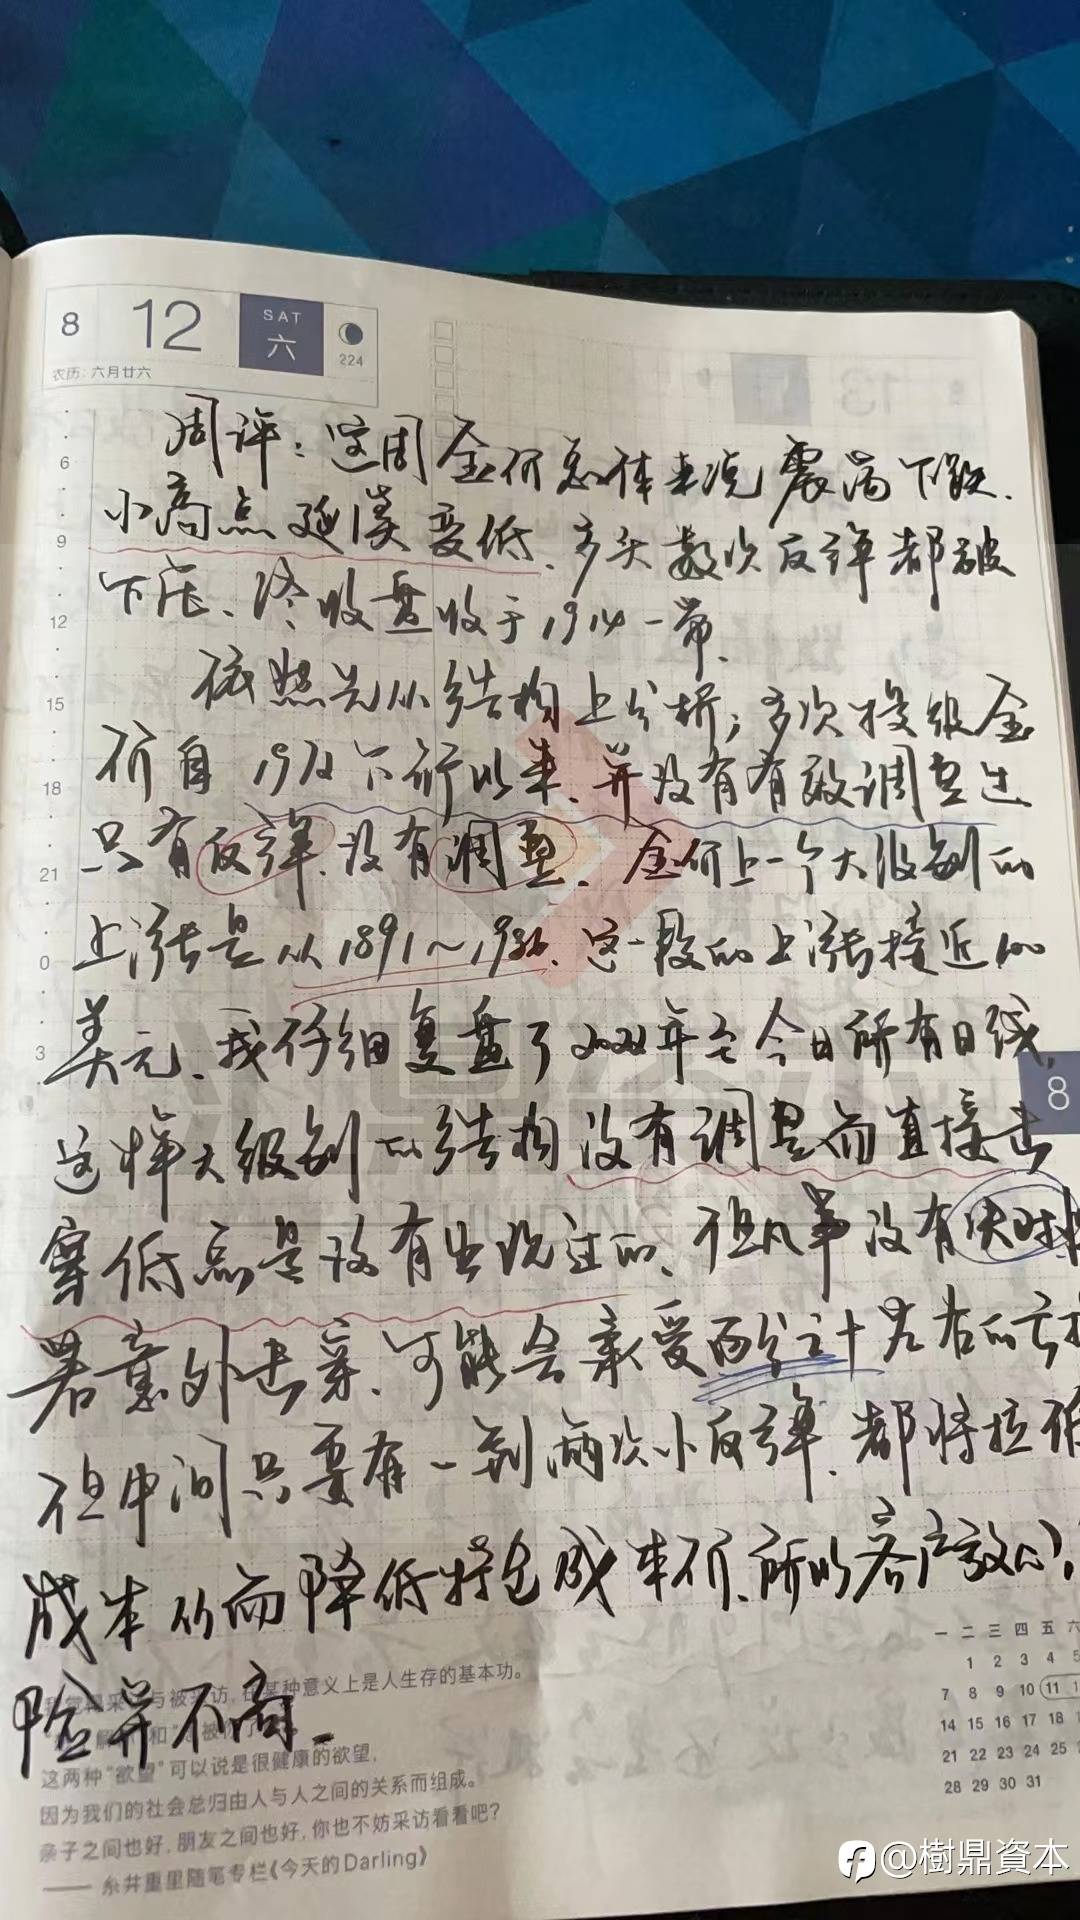 8 12 SAT 六 224
农历:六月廿六
周评:这周金价总体来说震荡下跌、
6
小高点延续变低、多头数次反弹都被
9
下压、 收盘收于1914一带、
12
依照先从结构上分析;多次接级金
15
价自 1972下行以来、并没有有效调整过
18
只有反弹、没有调整、金价上一个大级别的
21
上涨是从1891~1986、这一段的上涨接近100
0
美元、我仔细复盘了2022年至今日所有日线,
3
8
这样大级别的结构没有调整而直接击
穿低点是没有出现过的、但凡事没有
若意外击穿、可能会承受百分之十左右的亏
但中间只要有一到两次小反弹、都将拉低
成本从而降低持仓成本价、所以客户放心,
险并不高
与被 访, 某种意义上是人生存的基本功。
这两种“欲望”可以说是很健康的欲望,
因为我们的社会总归由人与人之间的关系而组成。
亲子之间也好,朋友之间也好,你也不妨采访看看吧?
—— 糸井重里随笔专栏《今天的Darling》
一 二 三 四 五 六
1 2 3 4 5
7 8 9 10 11
14 15 16 17 18
21 22 23 24 25
28 29 30 31
@樹鼎資本